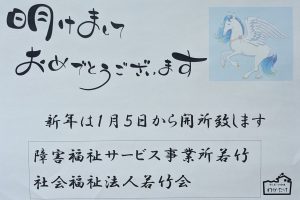 明けまして
おめでとうございます
新年は1月5日から開所致します
障害福祉サービス事業所若竹
社会福祉法人若竹会
わかたけ